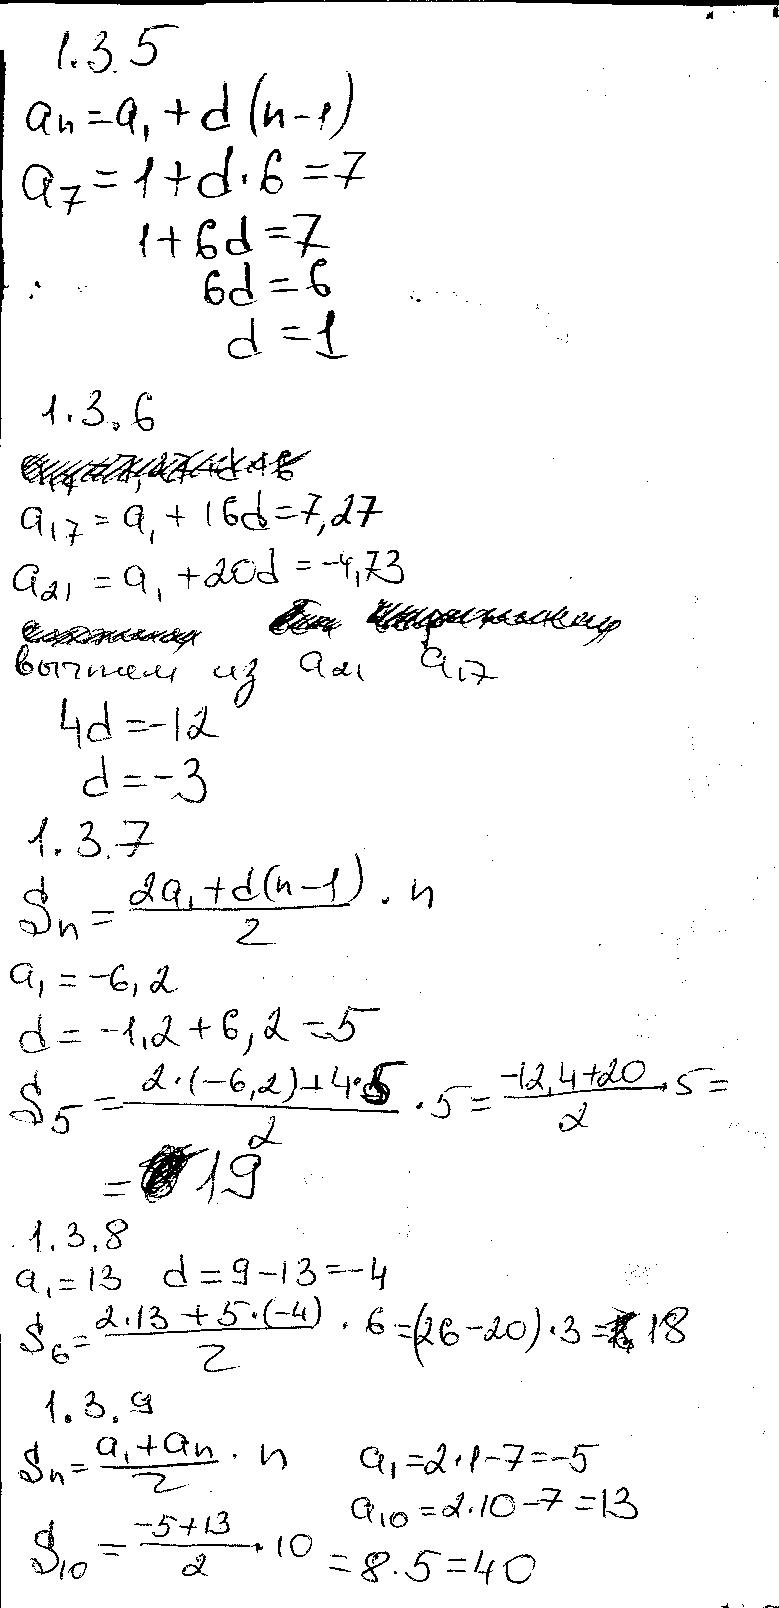 1.3.5
aₙ=a₁+d(n-1)
a₇=1+d·6=7
1+6d=7
6d=6
d=1
1.3.6
a₁₇=a₁+16d=7,27
a₂₁=a₁+20d=-4,73
вычтем из a₂₁ a₁₇
4d=-12
d=-3
1.3.7
Sₙ=(2a₁+d(n-1))/2·n
a₁=-6,2
d=-1,2+6,2=5
S₅=(2·(-6,2)+4·5)/2·5=(-12,4+20)/2·5=
=19
1.3.8
a₁=13 d=9-13=-4
S₆=(2·13+5·(-4))/2·6=(26-20)·3=18
1.3.9
Sₙ=(a₁+aₙ)/2·n a₁=2·1-7=-5
a₁₀=2·10-7=13
S₁₀=(-5+13)/2·10=8·5=40